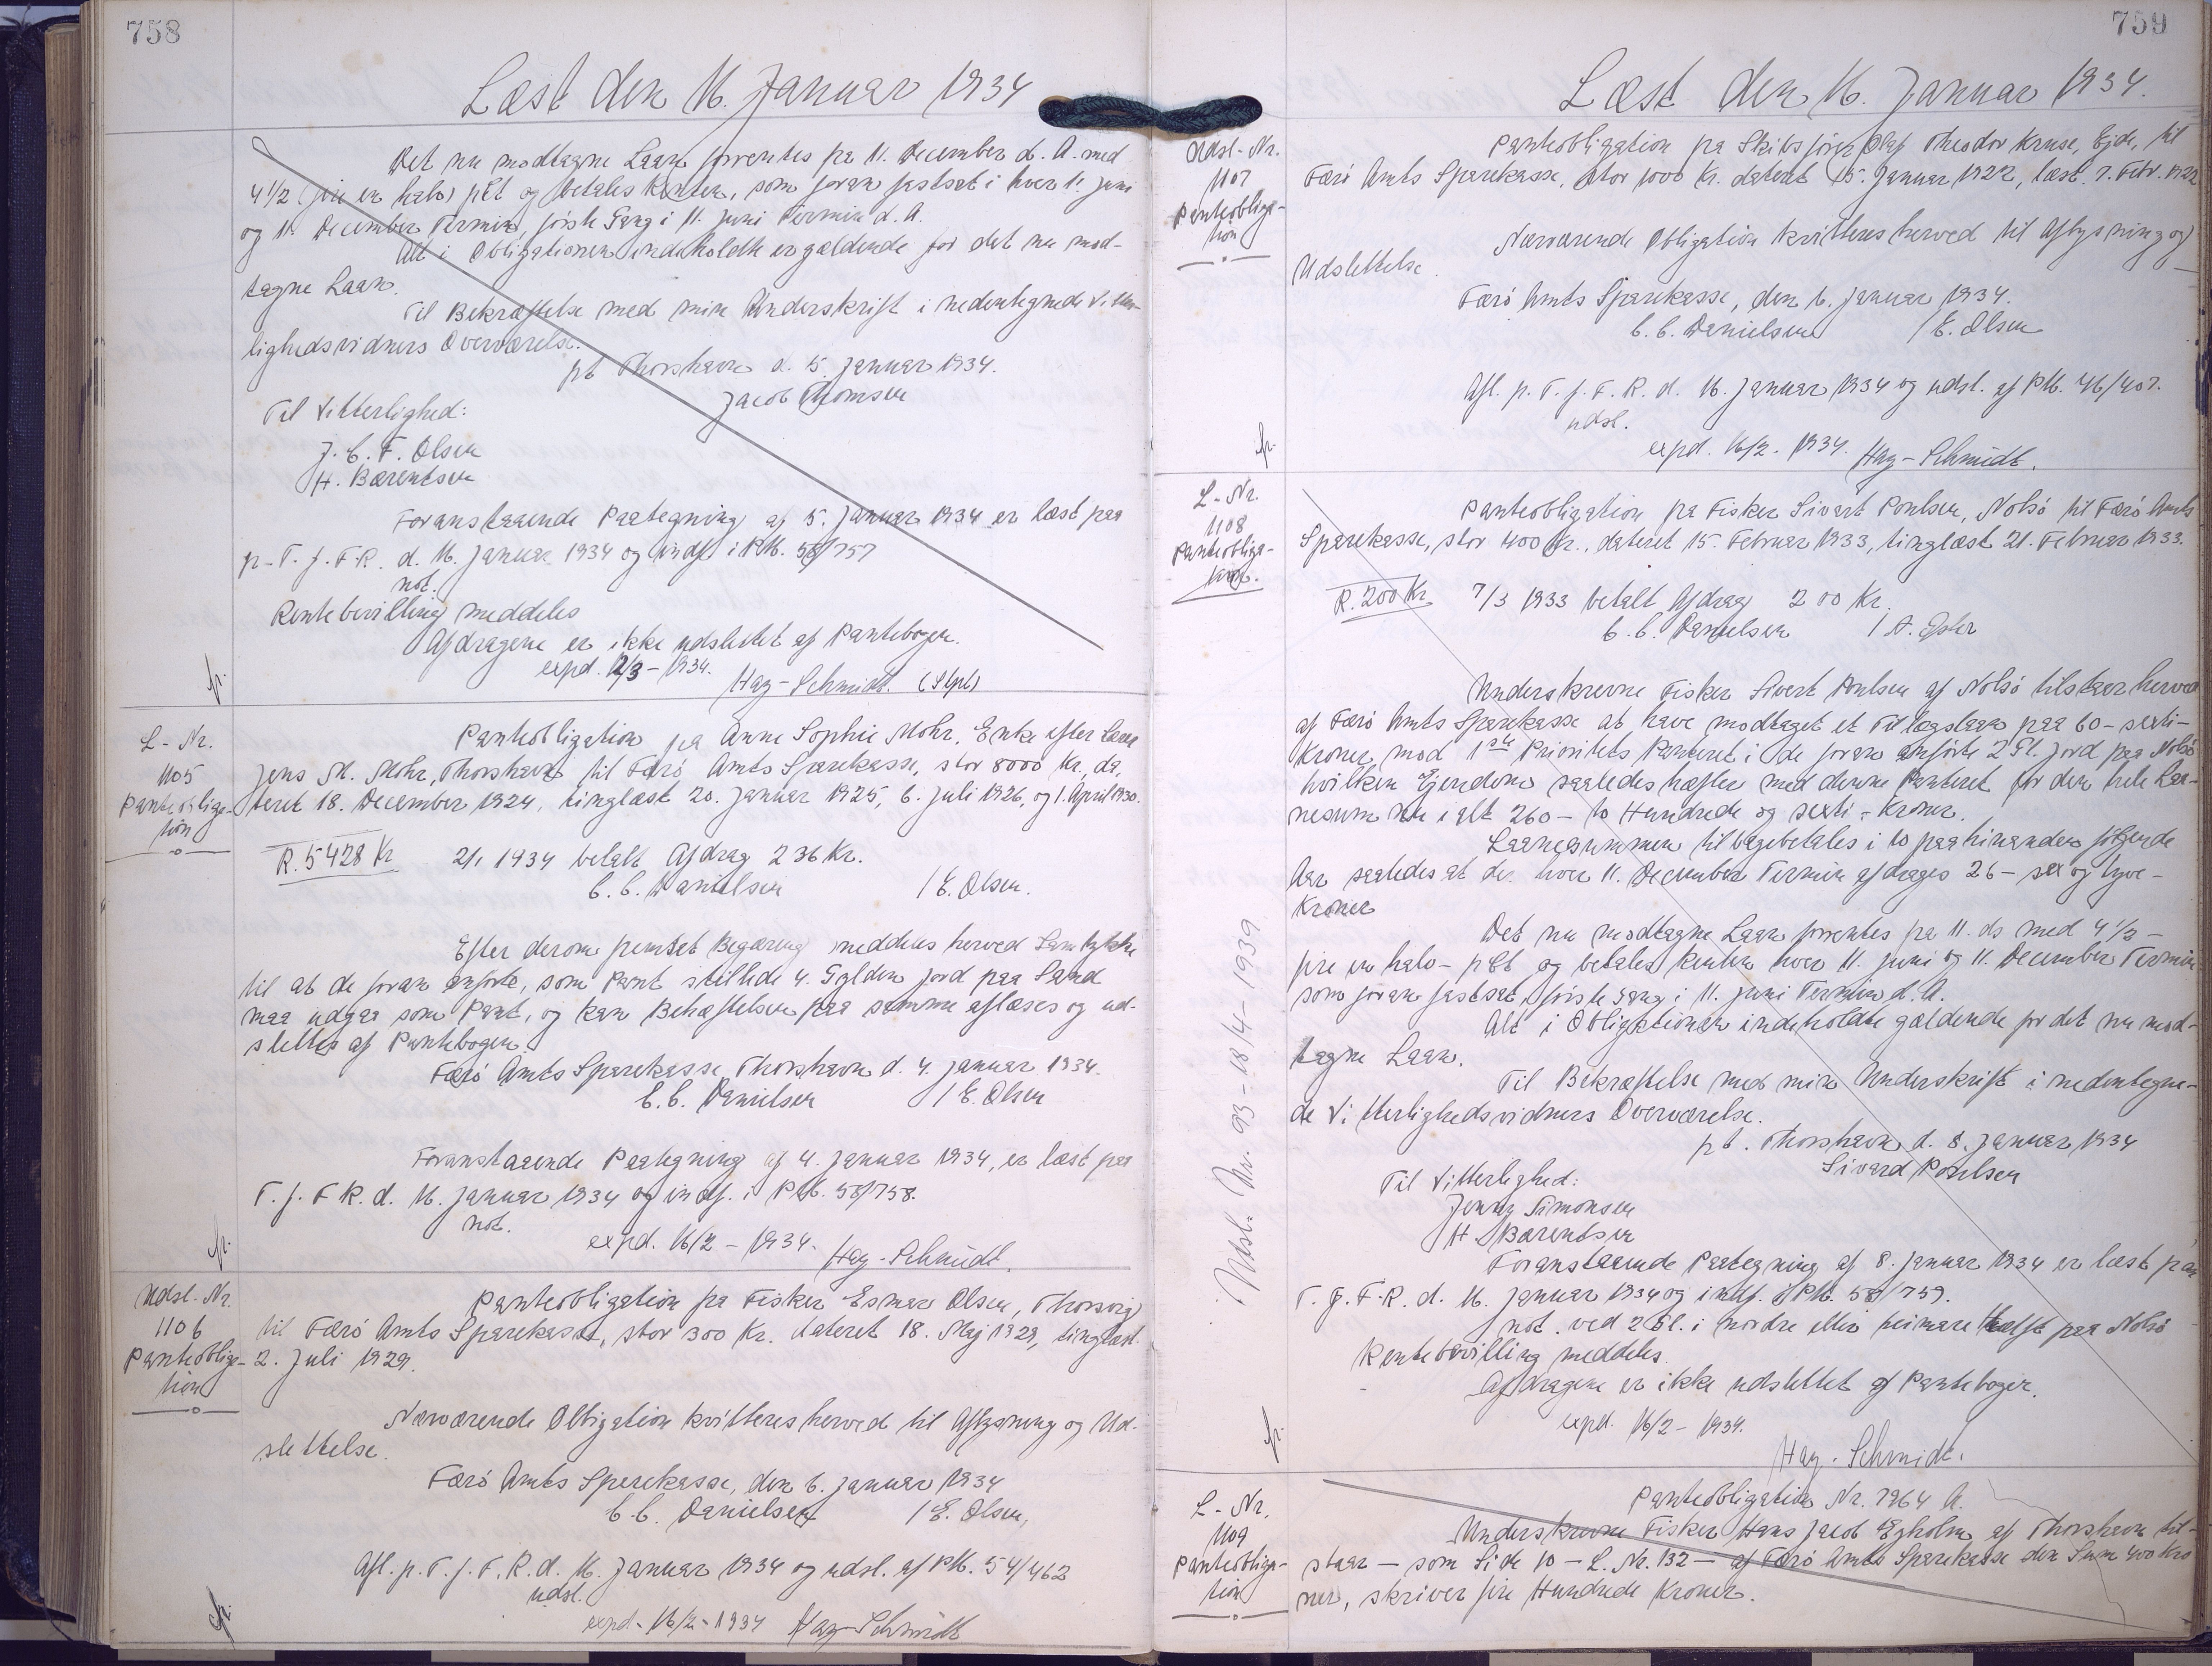 758
Læst den 16. Januar 1934
Det nu modtagne Laan forrentes fra 11. December d. A. med
4 1/2 (fire en halv) pCt og betales Renten, som foran fastsat i hver 11. Juni
og 11. December Termin, første Gang i 11. Juni Termin d. A.
Alt i Obligationen indeholdte er gældende for det nu mod-
tagne Laan.
Til Bekræftelse med min Underskrift i nedentegnede Vitter-
lighedsvidners Overværelse.
pt Thorshavn d. 5. Januar 1934.
Jacob Thomsen
Til Vitterlighed:
J. C. F. Olsen
H. Bærentsen
Foranstaaende Paategning af 5. Januar 1934 er læst paa
p. T. f. F. R. d. 16. Januar 1934 og indf. i PM. 58/757
not.
Rentebevilling meddeles
Afdragene er ikke udslettet af Pantebogen.
expd. 12/3 - 1934. Hay-Schmidt. (Stpl)
fr.
L-Nr.
1105
Panteobliga-
tion
Panteobligation fra Anne Sophie Mohr, Enke efter
Jens M. Mohr, Thorshavn til Færø Amts Sparekasse, stor 8000 Kr., da-
teret 18. December 1924, tinglæst 20. Januar 1925, 6. Juli 1926, og 1. April 1930.
R. 5428 Kr 2/1 1934 betalt Afdrag 236 Kr.
C. C. Danielsen / E. Olsen.
Efter derom fremsat Begæring meddeles herved Samtykke
til at de foran anførte, som Pant stillede 4. Gylden Jord paa Sand
maa udgaa som Pant, og kan Behæftelsen paa samme aflæses og ud-
slettes af Pantebogen.
Færø Amts Sparekasse, Thorshavn d. 4. Januar 1934.
C. C. Danielsen / E. Olsen
Foranstaaende Paategning af 4. Januar 1934, er læst paa
T. f. F. R. d. 16. Januar 1934 og indf. i PM. 58/758.
not.
expd. 16/2 - 1934. Hay-Schmidt.
fr.
Udsl-Nr.
1106
Panteobliga-
tion
Panteobligation fra Fisker Esmar Olsen, Thorsvig
til Færø Amts Sparekasse, stor 300 Kr. dateret 18. Maj 1929, tinglæst
2. Juli 1929.
Nærværende Obligation kvitteres herved til Aflysning og Ud-
slettelse.
Færø Amts Sparekasse, den 6. Januar 1934
C. C. Danielsen / E. Olsen,
Afl. p. T. f. F. R. d. 16. Januar 1934 og udsl. af PM. 54/462
udsl.
expd. 16/2 - 1934 Hay-Schmidt
fr.
759
Læst den 16. Januar 1934.
Udsl-Nr.
1107
Panteobliga-
tion
Panteobligation fra Skibsfører Olaf Theodor Kruse, Ejde, til
Færø Amts Sparekasse, stor 1000 Kr. dateret 15. Januar 1922, læst 7. Febr. 1922
Nærværende Obligation kvitteres herved til Aflysning og
Udslettelse.
Færø Amts Sparekasse, den 6. Januar 1934.
C. C. Danielsen / E. Olsen
Afl. p. T. f. F. R. d. 16. Januar 1934 og udsl. af PM. 46/407.
udsl.
expd. 16/2. 1934. Hay-Schmidt.
fr.
L-Nr.
1108
Panteobliga-
tion.
Panteobligation fra Fisker Sivert Poulsen, Nolsø til Færø Amts
Sparekasse, stor 400 Kr., dateret 15. Februar 1933, tinglæst 21. Februar 1933.
R. 200 Kr 7/3 1933 betalt Afdrag 200 Kr.
C. C. Danielsen /
Underskrevne Fisker Sivert Poulsen af Nolsø tilstaar herved
af Færø Amts Sparekasse at have modtaget et Tillægslaan paa 60 - sexti-
Kroner mod 1ste Prioritets Panteret i de foran anførte 2 Gl. Jord paa Nolsø
hvilken Ejendom saaledes hæfter med denne Panteret for den hele Laa-
nesum nu i alt 260 - to Hundrede og sexti - Kroner.
Laanesummen tilbagebetales i 10 paa hinanden følgende
Aar saaledes at der hver 11. December Termin afdrages 26 - sex og tyve -
Kroner
Det nu modtagne Laan forrentes fra 11. ds med 4 1/2 -
fire en halv - pCt og betales Renten hver 11. Juni og 11. December Termin
som foran fastsat, første Gang i 11. Juni Termin d. A.
Alt i Obligationen indeholdte gældende for det nu mod-
tagne Laan.
Til Bekræftelse med min Underskrift i nedentegne-
de Vitterlighedsvidners Overværelse.
pt. Thorshavn d. 8. Januar 1934
Sivard Poulsen
Til Vitterlighed:
Jenny Simonsen
H. Bærentsen
Foranstaaende Paategning af 8. Januar 1934 er læst paa
T. f. F. R. d. 16. Januar 1934 og indf. i PM. 58/759.
not. ved 2 Gl. i nordre eller heimare Hælft paa Nolsø
Rentebevilling meddeles
Afdragene er ikke udslettet af Pantebogen.
expd. 16/2 - 1934.
Hay-Schmidt.
fr.
Udsl. Nr. 93 - 18/4 - 1939
L-Nr.
1109
Panteobliga-
tion
Panteobligation Nr. 7964 A.
Underskrevne Fisker Hans Jacob Egholm af Thorshavn til-
staar - som Side 10 - L. Nr. 132 - af Færø Amts Sparekasse den Sum 400 Kro
ner, skriver fire Hundrede Kroner.